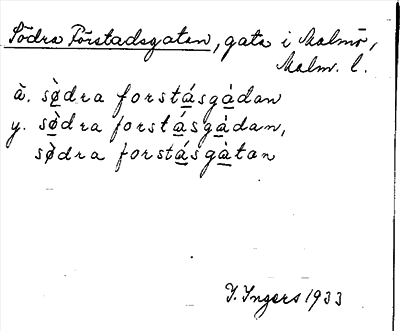 Södra Förstadsgatan, gata i Malmö,
Malm. l.
ä. sø̀dra forstásgàdan
y. sø̀dra forstásgàdan,
sø̀dra forstásgàtan
I. Ingers 1933